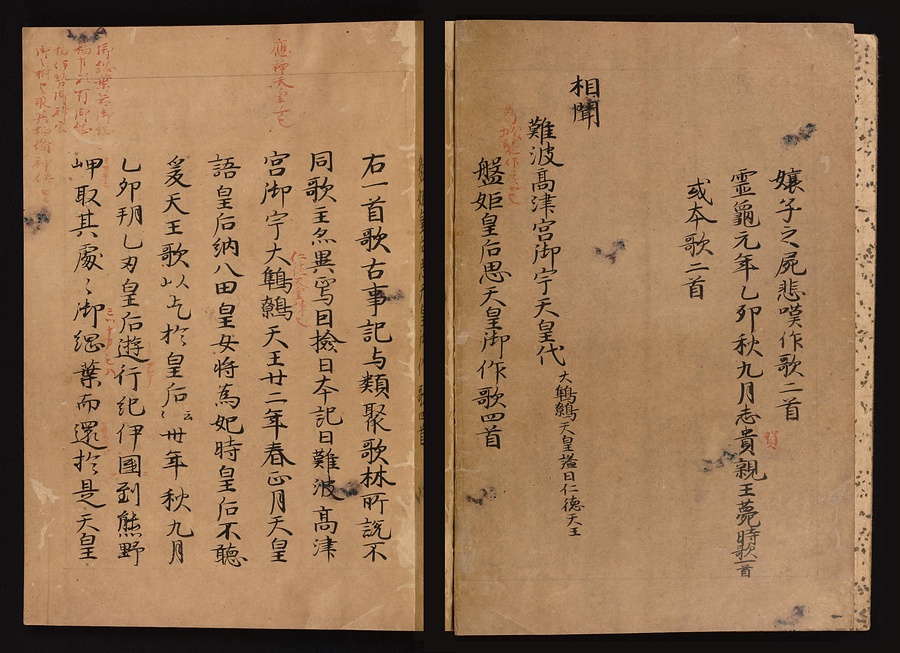 孃子之屍悲嘆作歌二首
靈龜元年乙卯秋九月志貴親王薨時歌一首
或本歌二首
相聞
難波高津宮御宇天皇代 大鷦鷯天皇謚曰仁德天王
盤姫皇后思天皇御作歌四首
右一首歌古事記与類聚歌林所說不
同歌主亦異焉因撿日本記曰難波高津
宮御宇大鷦鷯天王廿二年春正月天皇
語皇后納八田皇女将為妃時皇后不聽
爰天王歌以乞於皇后々云卅年秋九月
乙卯朔乙丑皇后遊行紀伊國到熊野
岬取其處々御綱葉而還於是天皇